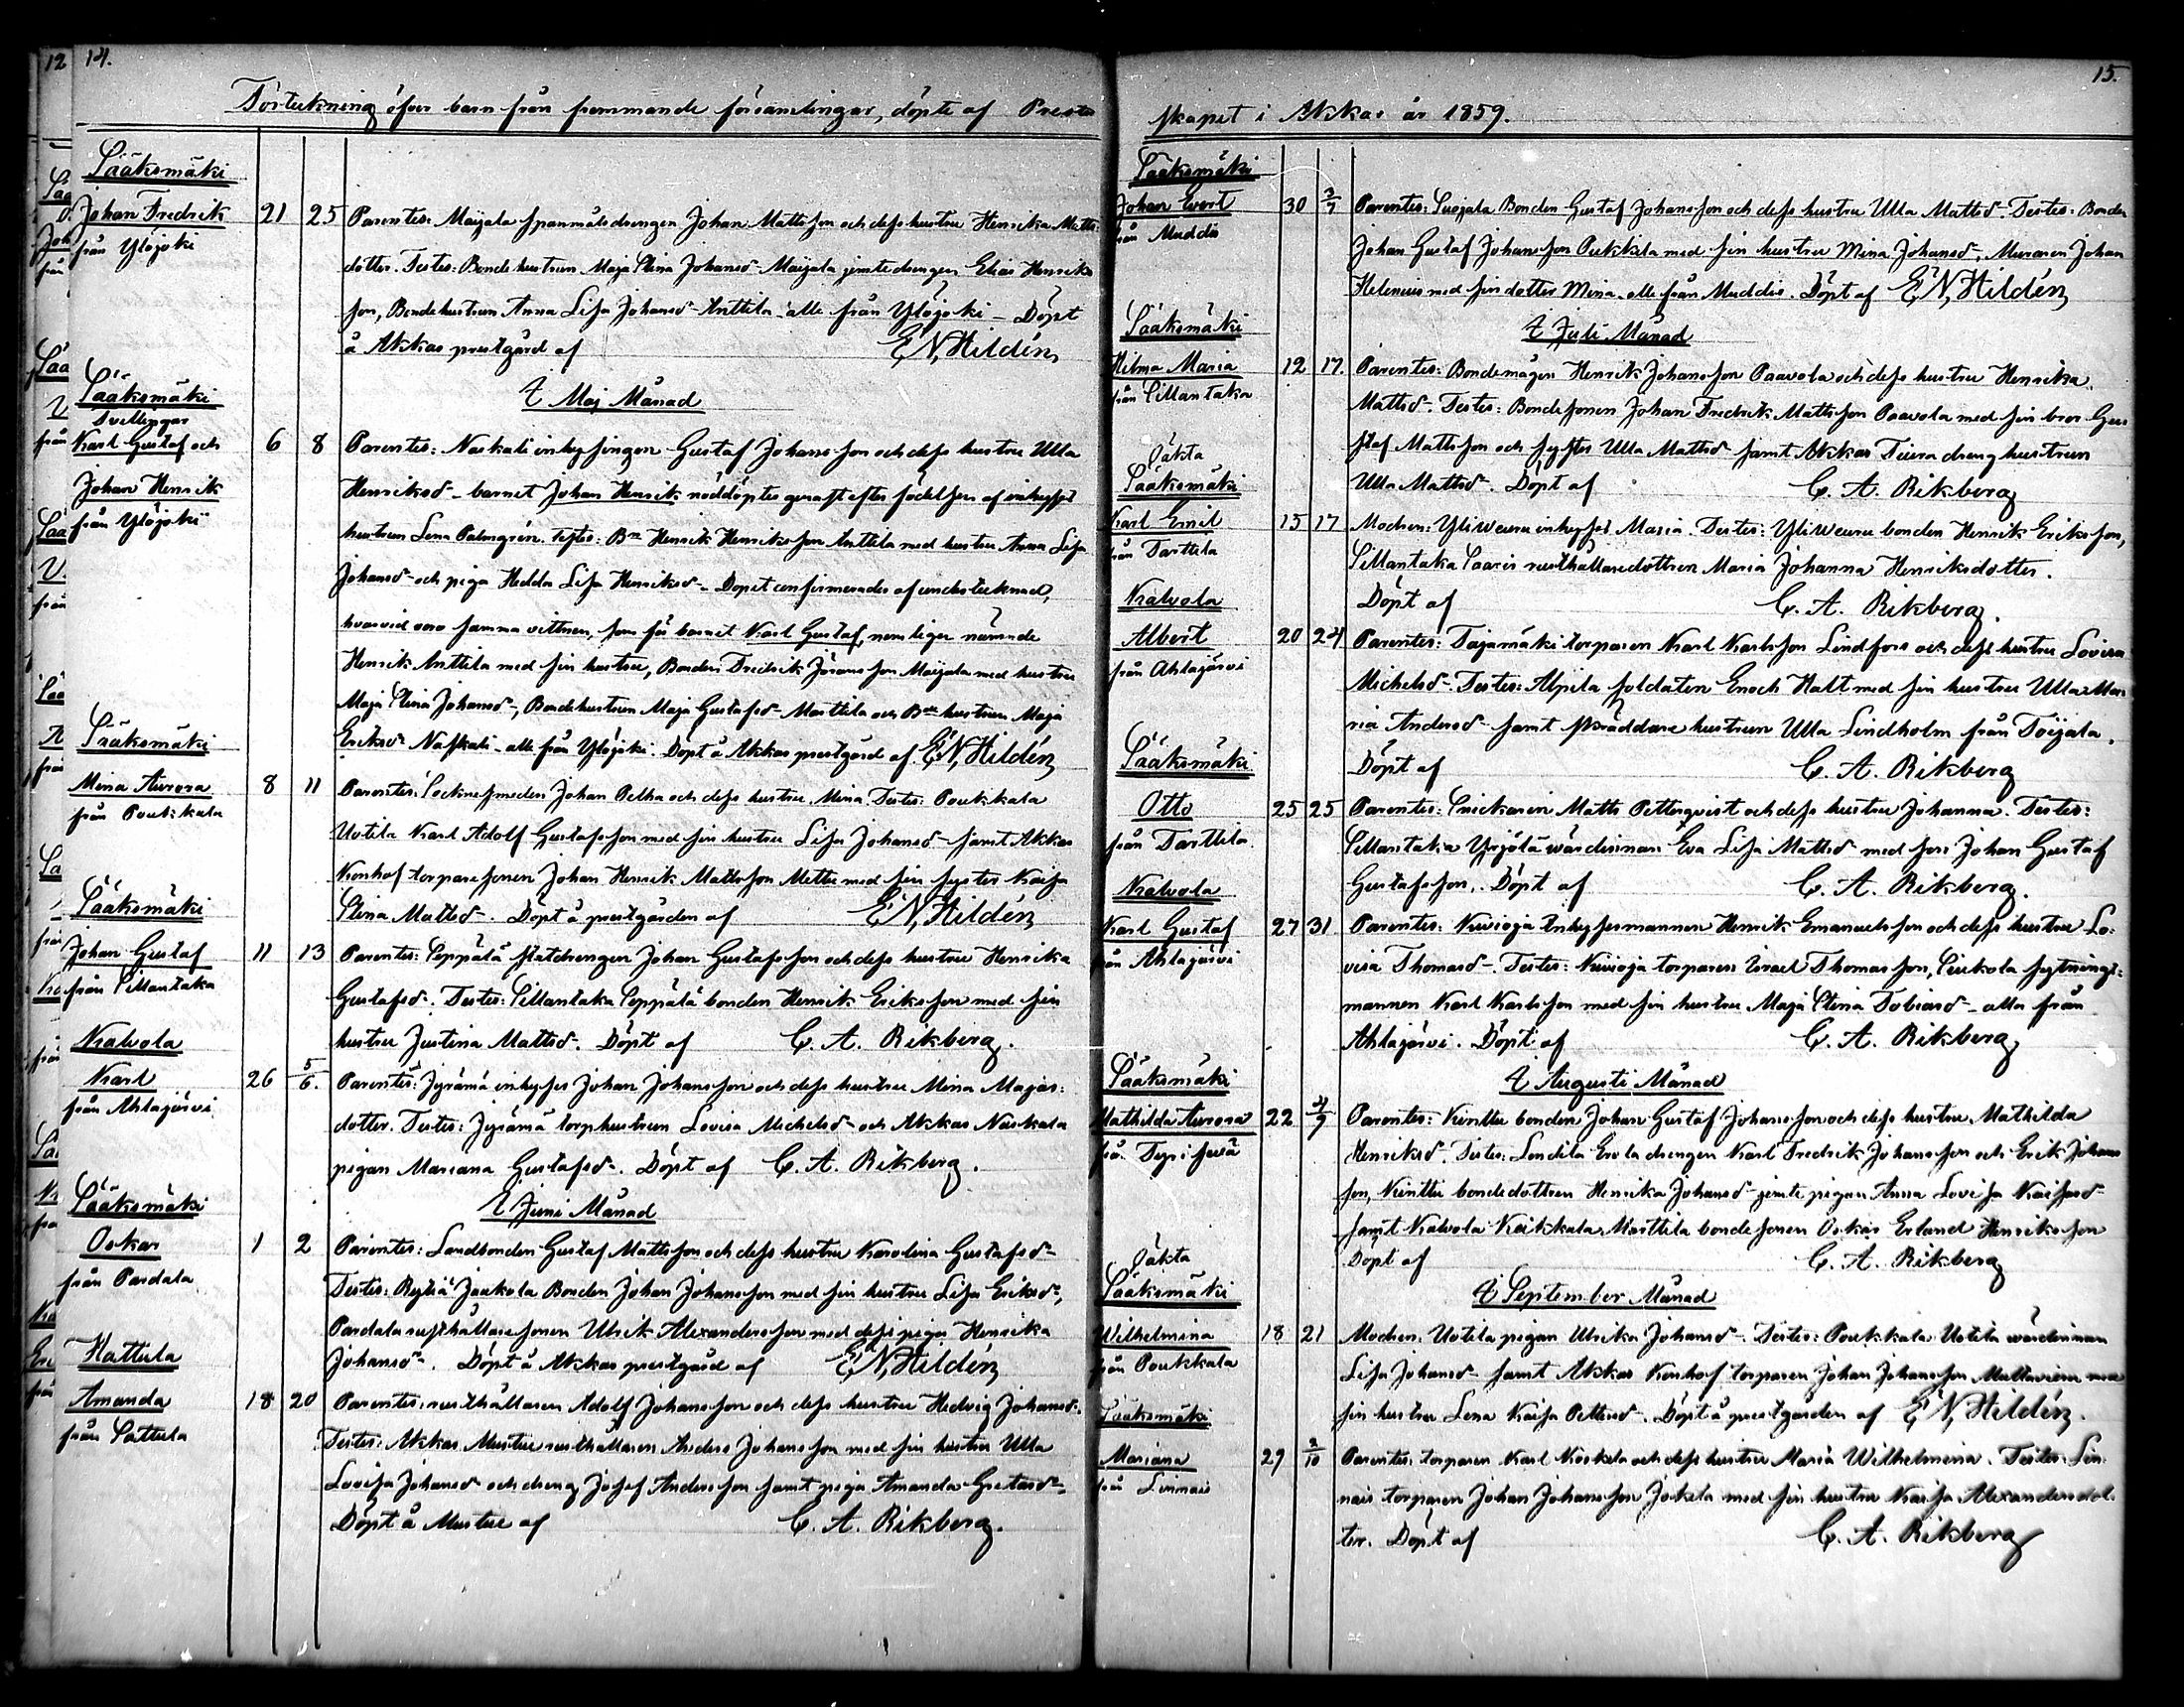 12 14.
Förteckning öfver barn från främmande församlingar, döpte af Prester
Sääksmäki
Johan Fredrik 21 25 Parentes: Maijala spannmålsdrengen Johan Mattsson och dess hustru Henrika Matts-
från Ylöjoki
dotter. Testes: Bondehustrun Maja Stina Johansdr Maijala jemte drengen Elias Henriks
son, Bondehustrun Anna Lisa Johansdr Anttila alle från Ylöjoki – Döpt
å Akkas prestgård af E N Hildén
I Maj Månad
Sääksmäki
Tvillingar
Karl Gustaf och 6 8 Parentes: Naskali inhysingen Gustaf Johansson och dess hustru Ulla
Johan Henrik
från Ylöjoki
Henriksdr – barnet Johan Henrik nöddöptes genast efter födelsen af inhyses
hustrun Lena Palmgrén. Testes: Bn Henrik Henriksson Anttila med hustru Anna Lisa
Johansdr och piga Hedda Lisa Henriksdr – Dopet confirmerades af undertecknad,
hvarvid voro samma vittnen, som för barnet Karl Gustaf, nemligen nämnde
Henrik Anttila med sin hustru, Bonden Fredrik Göransson Maijala med hustru
Maja Stina Johansdr, Bondehustrun Maja Gustafsdr Marttila och Bde hustrun Maja
Eriksdr Naskali – alle från Ylöjoki. Döpt å Akkas prestgård af E N Hildén
Sääksmäki
Mina Aurora 8 11 Parentes: Socknesmeden Johan Pelha och dess hustru Mina. Testes: Poukkala
från Poukkala
Uotila Karl Adolf Gustafsson med sin hustru Lisa Johansdr samt Akkas
Konhof torparesonen Johan Henrik Mattsson Mettu med sin syster Kaisa
Stina Mattsdr. Döpt å prestgården af E N Hildén
Sääksmäki
Johan Gustaf 11 13 Parentes: Seppälä statdrengen Johan Gustafsson och dess hustru Henrika
från Sillantaka
Gustafsdr. Testes: Sillantaka Seppälä bonden Henrik Eriksson med sin
hustru Justina Mattsdr. Döpt af C. A. Rikberg.
Kalvola
Karl 26 5/6. Parentes: Jyrämä inhyses Johan Johansson och dess hustru Mina Majas-
från Ahlajärvi
dotter. Testes: Jyrämä torphustrun Lovisa Michelsdr och Akkas Naskala
pigan Mariana Gustafsdr. Döpt af C. A. Rikberg.
I Juni Månad
Sääksmäki
Oskar 1 2 Parentes: Landbonden Gustaf Mattsson och dess hustru Karolina Gustafsdr
från Pardala
Testes: Ryhiä Jaakola Bonden Johan Johansson med sin hustru Lisa Eriksdr,
Pardala rusthållaresonen Ulrik Alexandersson med dess piga Henrika
Johansdr. Döpt å Akkas prestgård af E N Hildén
Hattula
Amanda 18 20 Parentes: rusthållaren Adolf Johansson och dess hustru Hedvig Johansdr.
från Sattula
Testes: Akkas Mustue rusthållaren Anders Johansson med sin hustru Ulla
Lovisa Johansdr och dreng Josef Andersson samt piga Amanda Gretasdr.
Döpt å Mustue af C. A. Rikberg.
15.
skapet i Akkas år 1859.
Sääksmäki
Johan Evert 30 3/7 Parentes: Suojala Bonden Gustaf Johansson och dess hustru Ulla Mattsdr. Testes: Bonden
från Muddis
Johan Gustaf Johansson Pukkila med sin hustru Mina Johansdr, Muraren Johan
Helenius med sin dotter Mina. alle från Muddis. Döpt af E N Hildén
I Juli Månad
Sääksmäki
Hilma Maria 12 17. Parentes: Bondemågen Henrik Johansson Paavola och dess hustru Henrika
från Sillantaka
Mattsdr. Testes: Bondesonen Johan Fredrik Mattsson Paavola med sin bror Gus
staf Mattsson och syster Ulla Mattsdr samt Akkas Tiura drenghustrun
Ulla Mattsdr. Döpt af C. A. Rikberg
Oäkta
Sääksmäki
Karl Emil 15 17 Modren: Yliweuru inhyses Maria. Testes: Yliweuru bonden Henrik Eriksson,
från Tarttila
Sillantaka Saaris rusthållaredottren Maria Johanna Henriksdotter.
Döpt af C. A. Rikberg.
Kalvola
Albert 20 24 Parentes: Tajamäki torparen Karl Karlsson Lindfors och dess hustru Lovisa
från Ahlajärvi
Michelsdr. Testes: Alpila soldaten Enoch Halt med sin hustru Ulla Ma-
ria Andersdr samt skräddare hustrun Ulla Lindholm från Toijala.
Döpt af C. A. Rikberg
Sääksmäki
Otto 25 25 Parentes: Snickaren Matts Petterqvist och dess hustru Johanna. Testes:
från Tarttila
Sillantaka Yrjölä wärdinnan Eva Lisa Mattsdr med son Johan Gustaf
Gustafsson. Döpt af C. A. Rikberg.
Kalvola
Karl Gustaf 27 31 Parentes: Kuivoja Inhysesmannen Henrik Emanuelsson och dess hustru Lo-
från Ahlajärvi
visa Thomasdr. Testes: Kuivoja torparen Israel Thomasson, Seukola sytnings-
mannen Karl Karlsson med sin hustru Maja Stina Tobiasdr – alla från
Ahlajärvi. Döpt af C. A. Rikberg
I Augusti Månad
Sääksmäki
Mathilda Aurora 22 4/9 Parentes: Kinttu bonden Johan Gustaf Johansson och dess hustru Mathilda
Henriksdr. Testes: Londila Erola drengen Karl Fredrik Johansson och Erik Johans
son, Kinttu bondedottren Henrika Johansdr jemte pigan Anna Lovisa Kaisasdr
samt Kalvola Keikkala Marttila bondesonen Oskar Erland Henriksson
Döpt af C. A. Rikberg
I September Månad
Oäkta
Sääksmäki
Wilhelmina 18 21 Modren: Uotila pigan Ulrika Johansdr. Testes: Poukkala Uotila wärdinnan
från Poukkala
Lisa Johansdr samt Akkas Konhof torparen Johan Johansson med
sin hustru Lena Kaisa Pettersdr. Döpt å prestgården af E N Hildén.
Sääksmäki
Mariana 29 2/10 Parentes: torparen Karl Koskela och dess hustru Maria Wilhelmina. Testes: Lin
från Linnais
nais torparen Johan Johansson Jokela med sin hustru Kaisa Alexandersdot
ter. Döpt af C. A. Rikberg